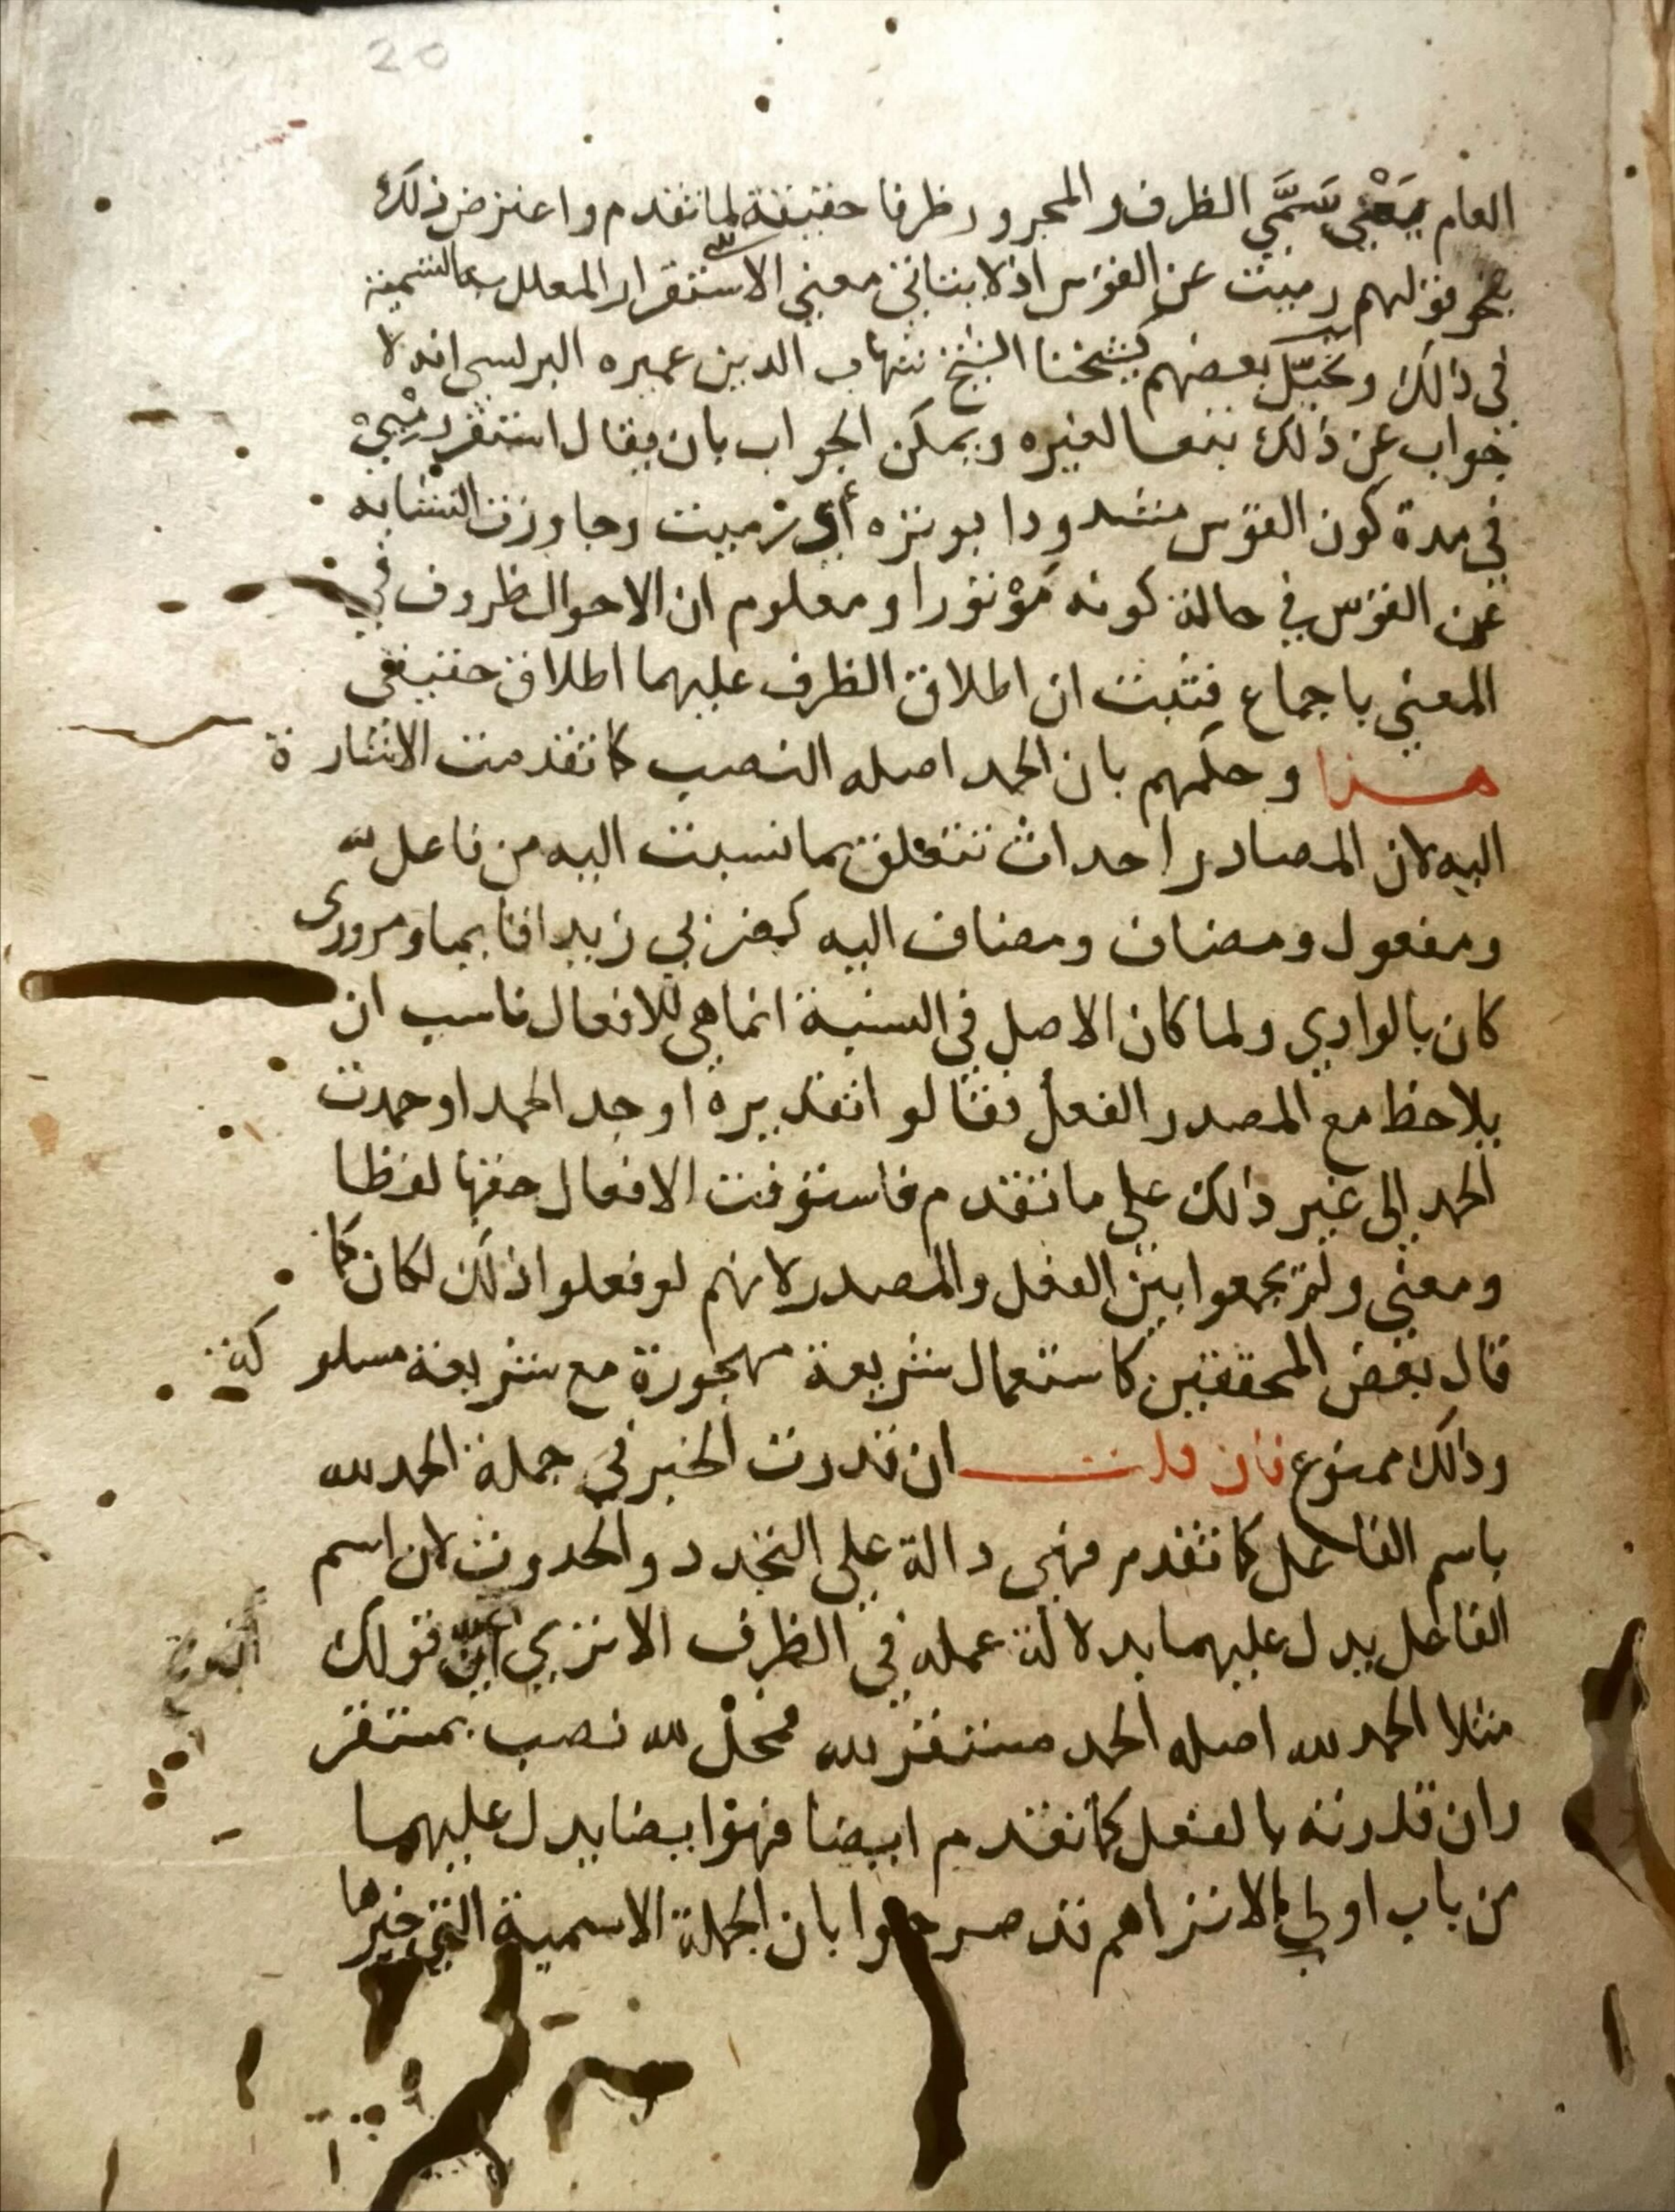 20
العام يعني سمي الظرف والمجرور ظرفا حقيقة لما تقدم واعترض ذلك
بنحو قولهم رميت عن القوس اذ لا يتاتى معنى الاستقرار المعلل به التسمية
في ذالك وتخيل بعضهم كشيخنا الشيخ شهاب الدين عميره البرلسي انه لا
جواب عن ذلك تبعا لغيره ويمكن الجواب بان يقال استقر رميي
في مدة كون القوس مشدودا بوتره أي رميت وجاوزت النشابه
عن القوس في حالة كونه موتورا ومعلوم ان الاحوال ظروف في
المعني باجماع فثبت ان اطلاق الظرف عليهما اطلاق حقيقي
هذا وحكمهم بان الحمد اصله النصب كما تقدمت الاشارة
اليه لان المصادر احداث تتعلق بما نسبت اليه من فاعل
ومفعول ومضاف ومضاف اليه كضربي زيدا قايما ومروري
كان بالوادي ولما كان الاصل في النسبة انما هي للافعال ناسب ان
يلاحظ مع المصدر الفعل فقالوا تقديره اوجد الحمد او حمدت
الحمد إلى غير ذالك على ما تقدم فاستوفت الافعال حقها لفظا
ومعنى ولم يجمعوا بين الفعل والمصدر لانهم لو فعلوا ذلك لكان كما
قال بعض المحققين كاستعمال شريعة مهجورة مع شريعة مسلوكة
وذالك ممنوع فان قلت ان قدرت الخبر في جملة الحمد لله
باسم الفاعل كما تقدم فهي دالة على التجدد والحدوث لان اسم
الفاعل يدل عليهما بدلالة عمله في الظرف الا تري ان قولك
مثلا الحمد لله اصله الحمد مستقر لله فمحل لله نصب بمستقر
وان قدرته بالفعل كما تقدم ايضا فهو ايضا يدل عليهما
من باب اولي الا تراهم قد صرحوا بان الجملة الاسمية التي خبرها